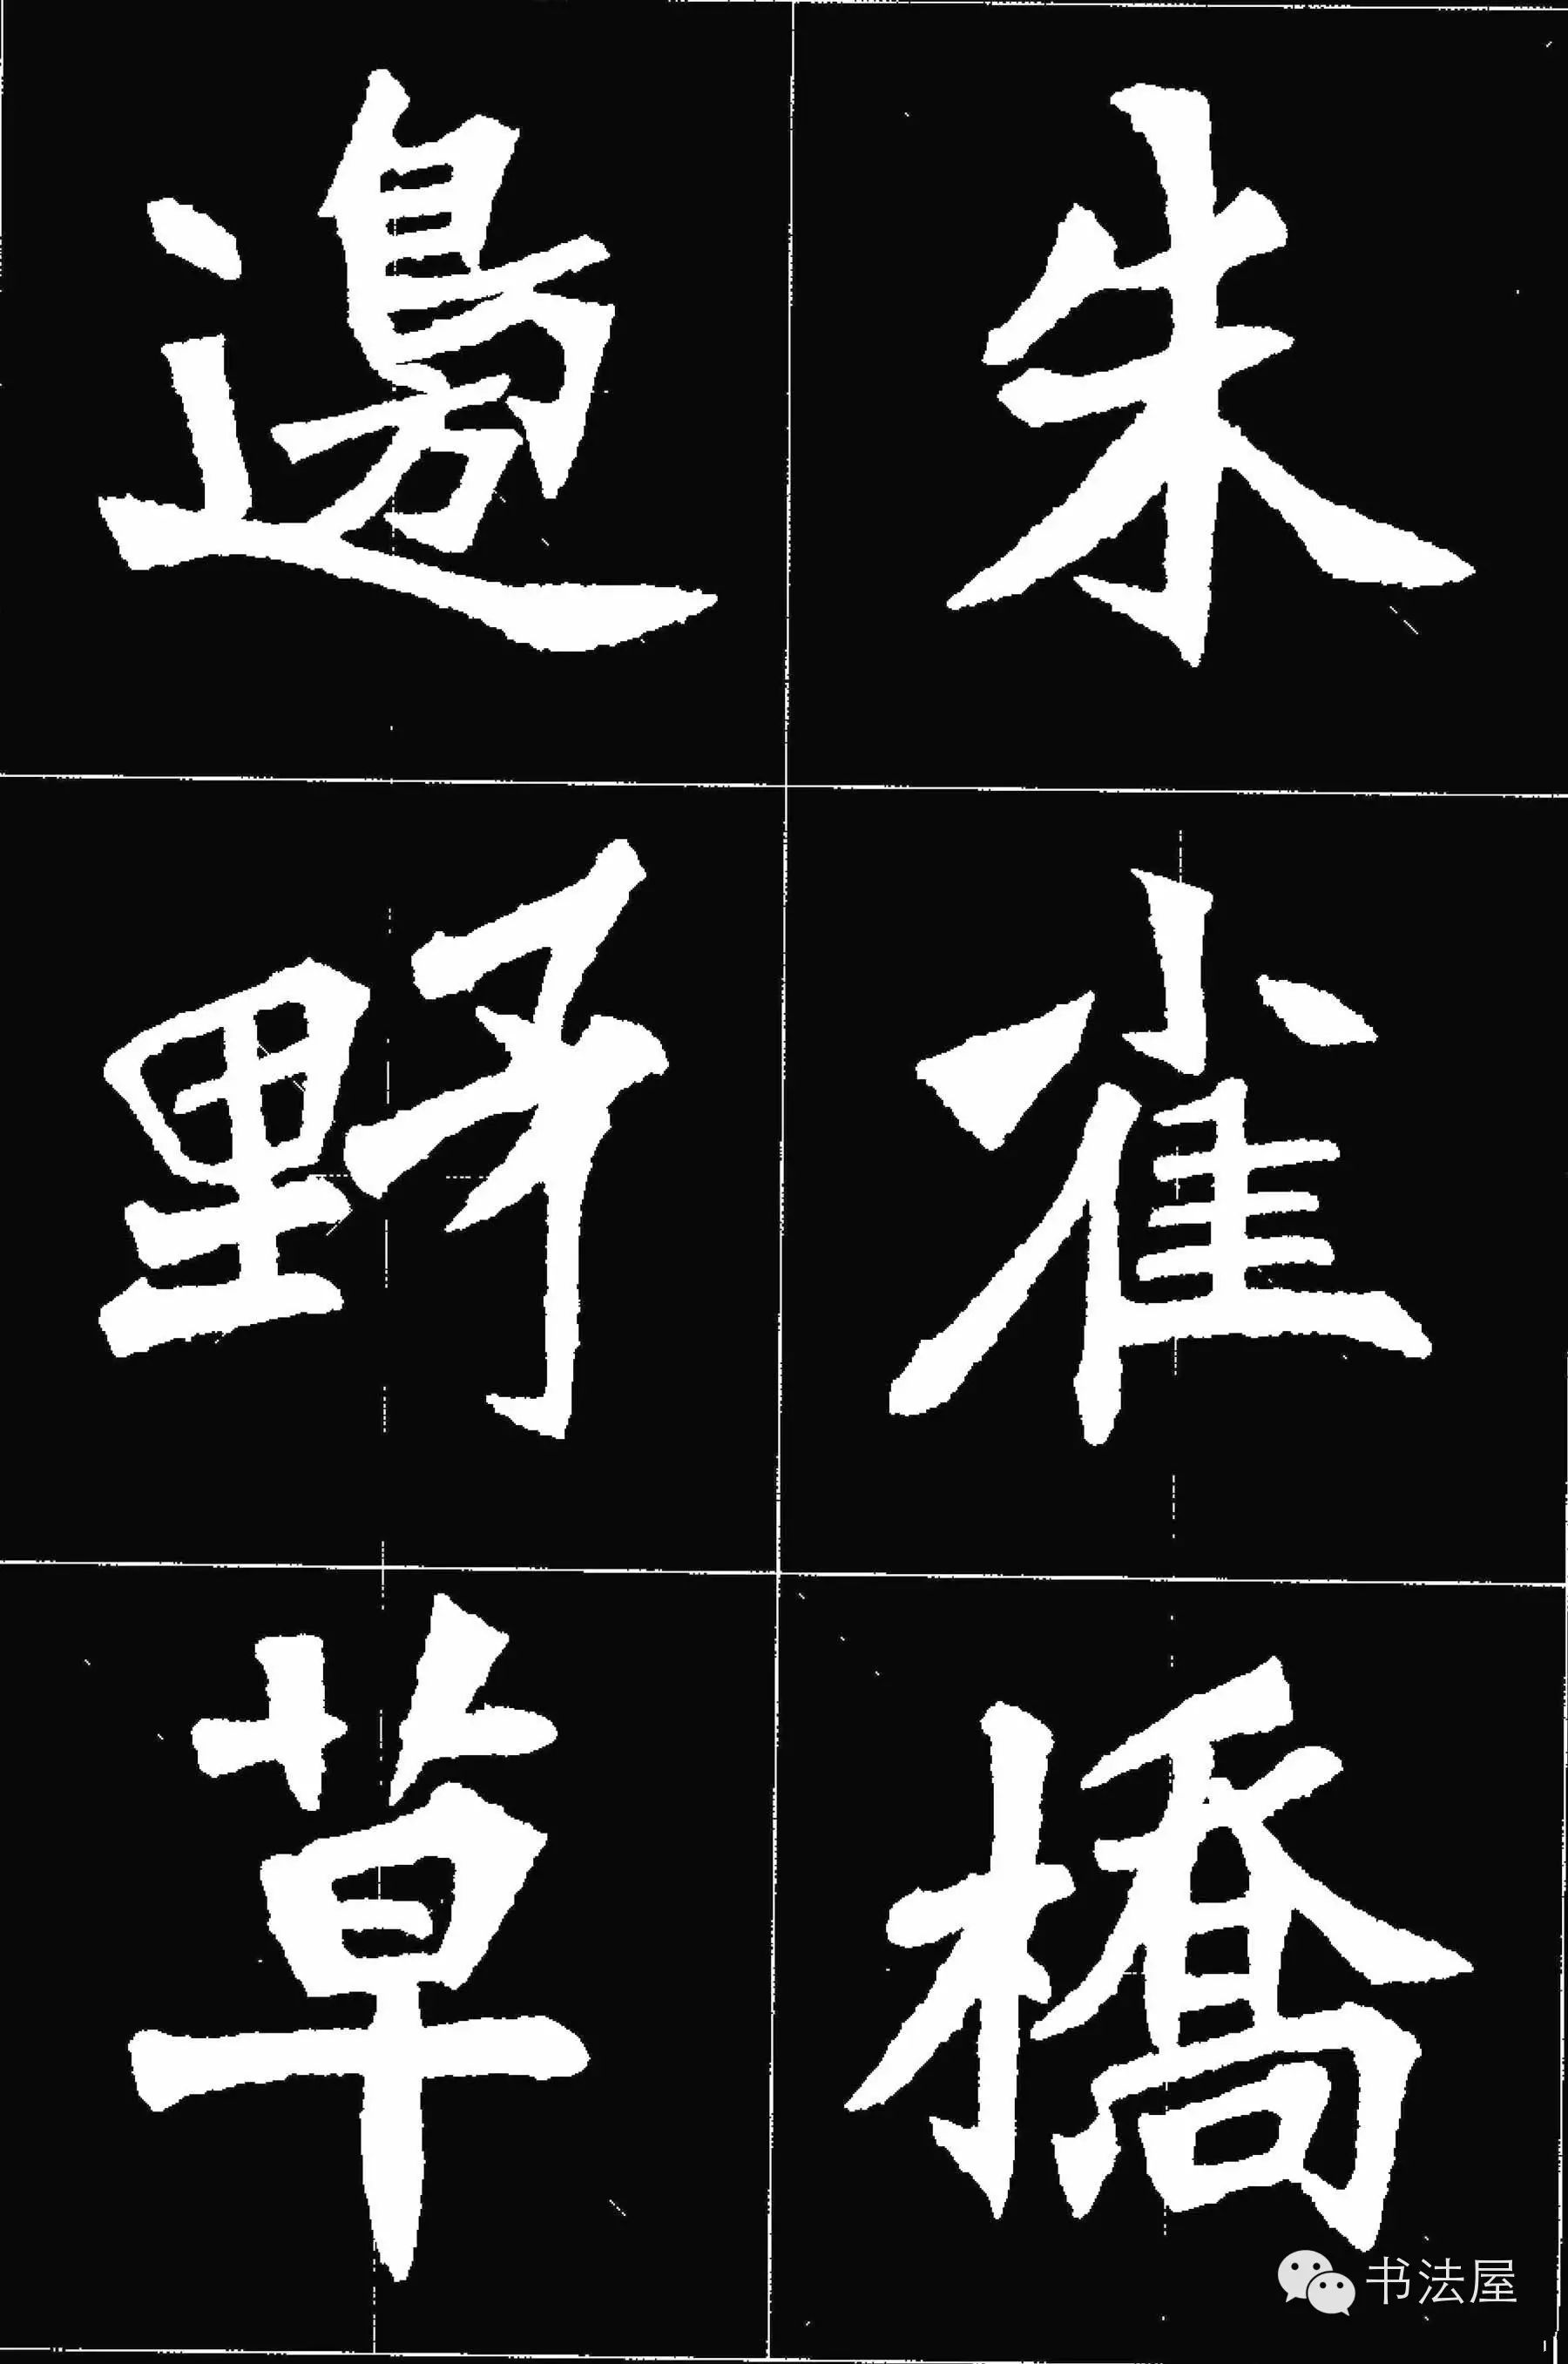 朱雀橋
邊野草
书法屋